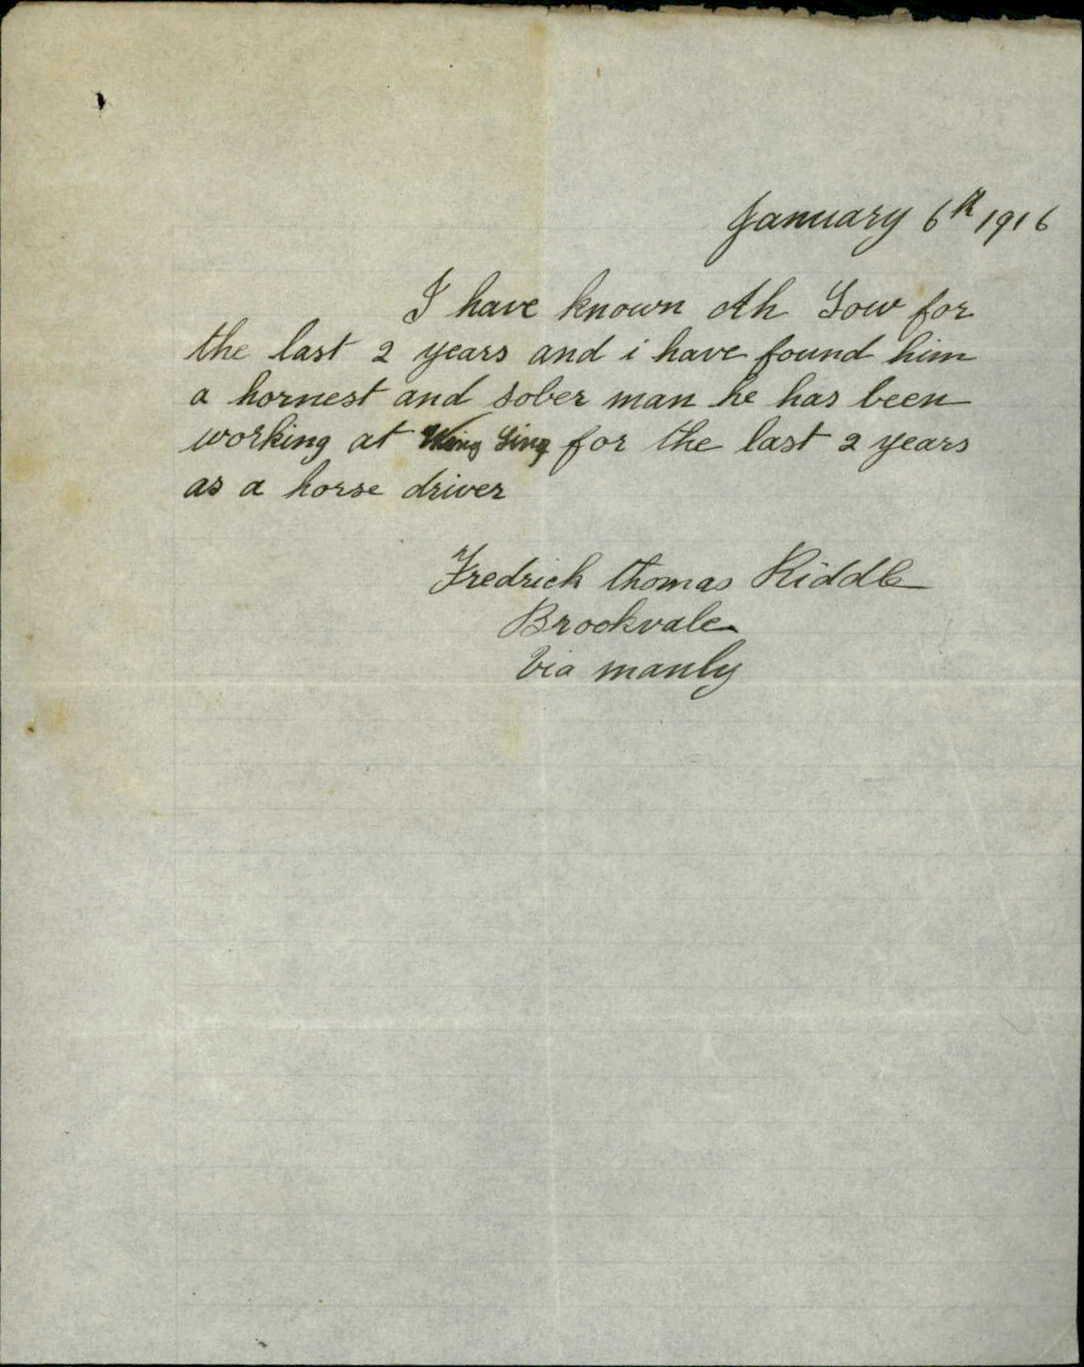 January 6th 1916
I have known Ah Gow for
the last 2 years and i have found him
a hornest and sober man he has been
working at Sing for the last 2 years
as a horse driver
Fredrich thomas Riddle
Brookvale
Via manly